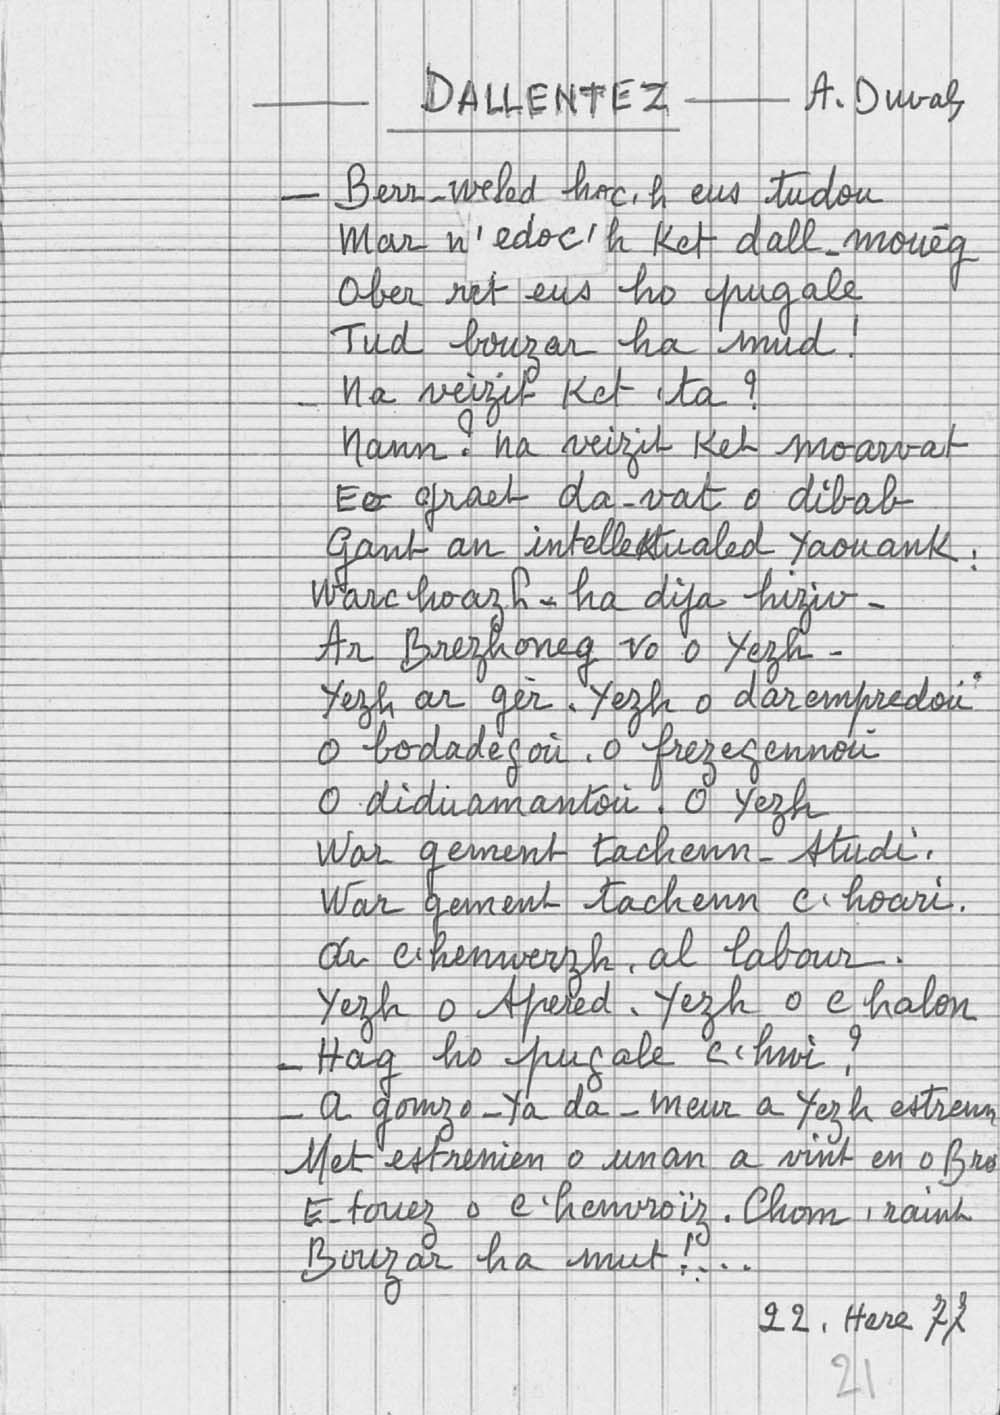 DALLENTEZ A. Duval
— Berr-weled hoc'h eus tudou
Mar n'edoc'h Ket dall-mouëg
Ober ret eus ho pugale
Tud bouzar ha mud!
- Na veizit Ket 'ta?
Nann! na veizit Ket moarvat
Eo graet da-vat o dibab
Gant an intellektualed Yaouank:
Warc'hoazh - ha dija hiziv -
Ar Brezhoneg vo o Yezh -
Yezh ar gêr. Yezh o darempredoù
O bodadegoù. O frezegennoù
O diduamantoù. O Yezh
War gement tachenn-studi.
War gement tachenn c'hoari.
Ar c'henwerzh, al labour.
Yezh o spered. Yezh o c'halon
- Hag ho pugale c'hwi?
- A gomzo-Ya da-meur a Yezh estrenn
Met estrenien o unan a vint en o Bro
E-touez o c'henvroïz. Chom 'raint
Bouzar ha mut!...
22. Here 77
21